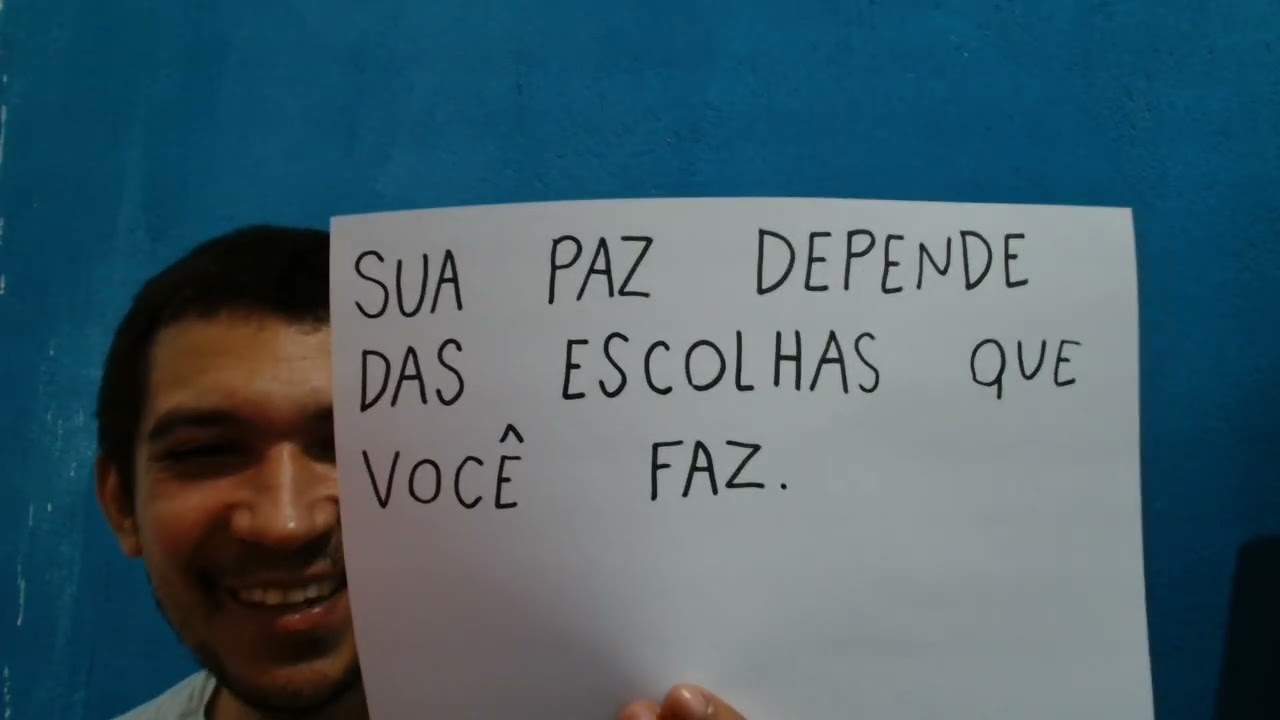 SUA PAZ DEPENDE
DAS ESCOLHAS QUE
VOCÊ FAZ.